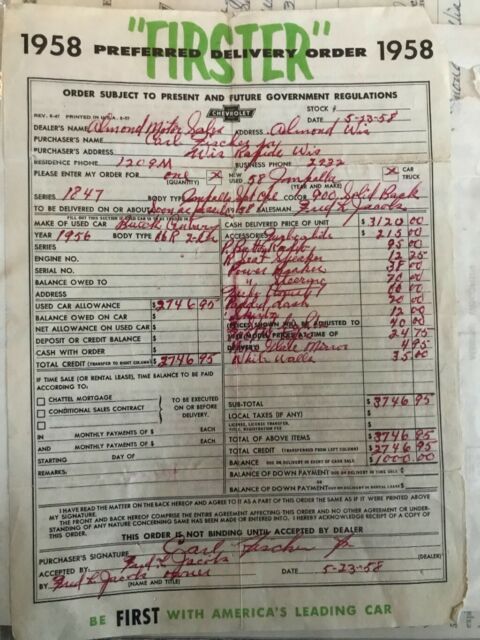 "FIRSTER"
1958 PREFERRED DELIVERY ORDER 1958
ORDER SUBJECT TO PRESENT AND FUTURE GOVERNMENT REGULATIONS
CHEVROLET
STOCK #
REV. 8-47 PRINTED IN U.S.A.
DATE 5-23-58
DEALER'S NAME Almond Motor Sales ADDRESS Almond Wis
PURCHASER'S NAME Carl Fischer Jr
PURCHASER'S ADDRESS Wis Wis
RESIDENCE PHONE 1209M BUSINESS PHONE 2332
PLEASE ENTER MY ORDER FOR one (QUANTITY) X NEW USED 58 Impala X CAR TRUCK
SERIES 1847 BODY TYPE Impala Spt Cpe COLOR 900 Solid Black
TO BE DELIVERED ON OR ABOUT soon as 1958 SALESMAN Fred L. Jacobs
MAKE OF USED CAR Buick Century
YEAR 1956 BODY TYPE HdR 2-dr
SERIES
ENGINE NO.
SERIAL NO.
BALANCE OWED TO
ADDRESS
USED CAR ALLOWANCE $ 2746 95
BALANCE OWED ON CAR $
NET ALLOWANCE ON USED CAR $
DEPOSIT OR CREDIT BALANCE $
CASH WITH ORDER $
TOTAL CREDIT (TRANSFER TO RIGHT COLUMN) $ 2746 95
CASH DELIVERED PRICE OF UNIT $ 3120 00
ACCESSORIES: 215 00
95 00
R. Seat Speaker 12 25
Power 38 00
" Steering 70 00
60 00
20 00
12 00
(PRICES SHOWN WILL BE ADJUSTED TO 40 00
PRICE AT TIME OF 24 75
DELIVERY) Mirror 4 95
White Walls 35 00
IF TIME SALE (OR RENTAL LEASE), TIME BALANCE TO BE PAID ACCORDING TO:
CHATTEL MORTGAGE
CONDITIONAL SALES CONTRACT
TO BE EXECUTED ON OR BEFORE DELIVERY.
IN MONTHLY PAYMENTS OF $ EACH
AND MONTHLY PAYMENTS OF $ EACH
STARTING DAY OF
REMARKS:
SUB-TOTAL $ 3746 95
LOCAL TAXES (IF ANY) $
LICENSE, LICENSE TRANSFER, TITLE, REGISTRATION FEE $
TOTAL OF ABOVE ITEMS $ 3746 95
TOTAL CREDIT (TRANSFERRED FROM LEFT COLUMN) $ 2746 95
BALANCE DUE ON DELIVERY IN EVENT OF CASH SALE $ 1000 00
BALANCE OF DOWN PAYMENT DUE ON DELIVERY IF TIME SALE $
BALANCE OF DOWN PAYMENT DUE ON DELIVERY IF RENTAL OR LEASE $
I HAVE READ THE MATTER ON THE BACK HEREOF AND AGREE TO IT AS A PART OF THIS ORDER THE SAME AS IF IT WERE PRINTED ABOVE MY SIGNATURE.
THE FRONT AND BACK HEREOF COMPRISE THE ENTIRE AGREEMENT AFFECTING THIS ORDER AND NO OTHER AGREEMENT OR UNDERSTANDING OF ANY NATURE CONCERNING SAME HAS BEEN MADE OR ENTERED INTO, I HEREBY ACKNOWLEDGE RECEIPT OF A COPY OF THIS ORDER.
THIS ORDER IS NOT BINDING UNTIL ACCEPTED BY DEALER
PURCHASER'S SIGNATURE Carl Fischer Jr
ACCEPTED BY: Fred L Jacobs (DEALER)
BY Fred L Jacobs owner (NAME AND TITLE) DATE 5-23-58
BE FIRST WITH AMERICA'S LEADING CAR